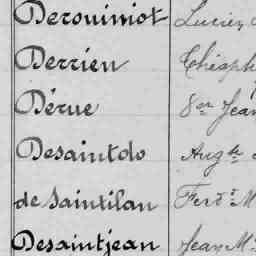 Derouiniot Lucien
Derrien Théoph
Dérue 8or Jean
Desaintdo Augte
de Saintilan Ferd M
Desaintjean Jean M